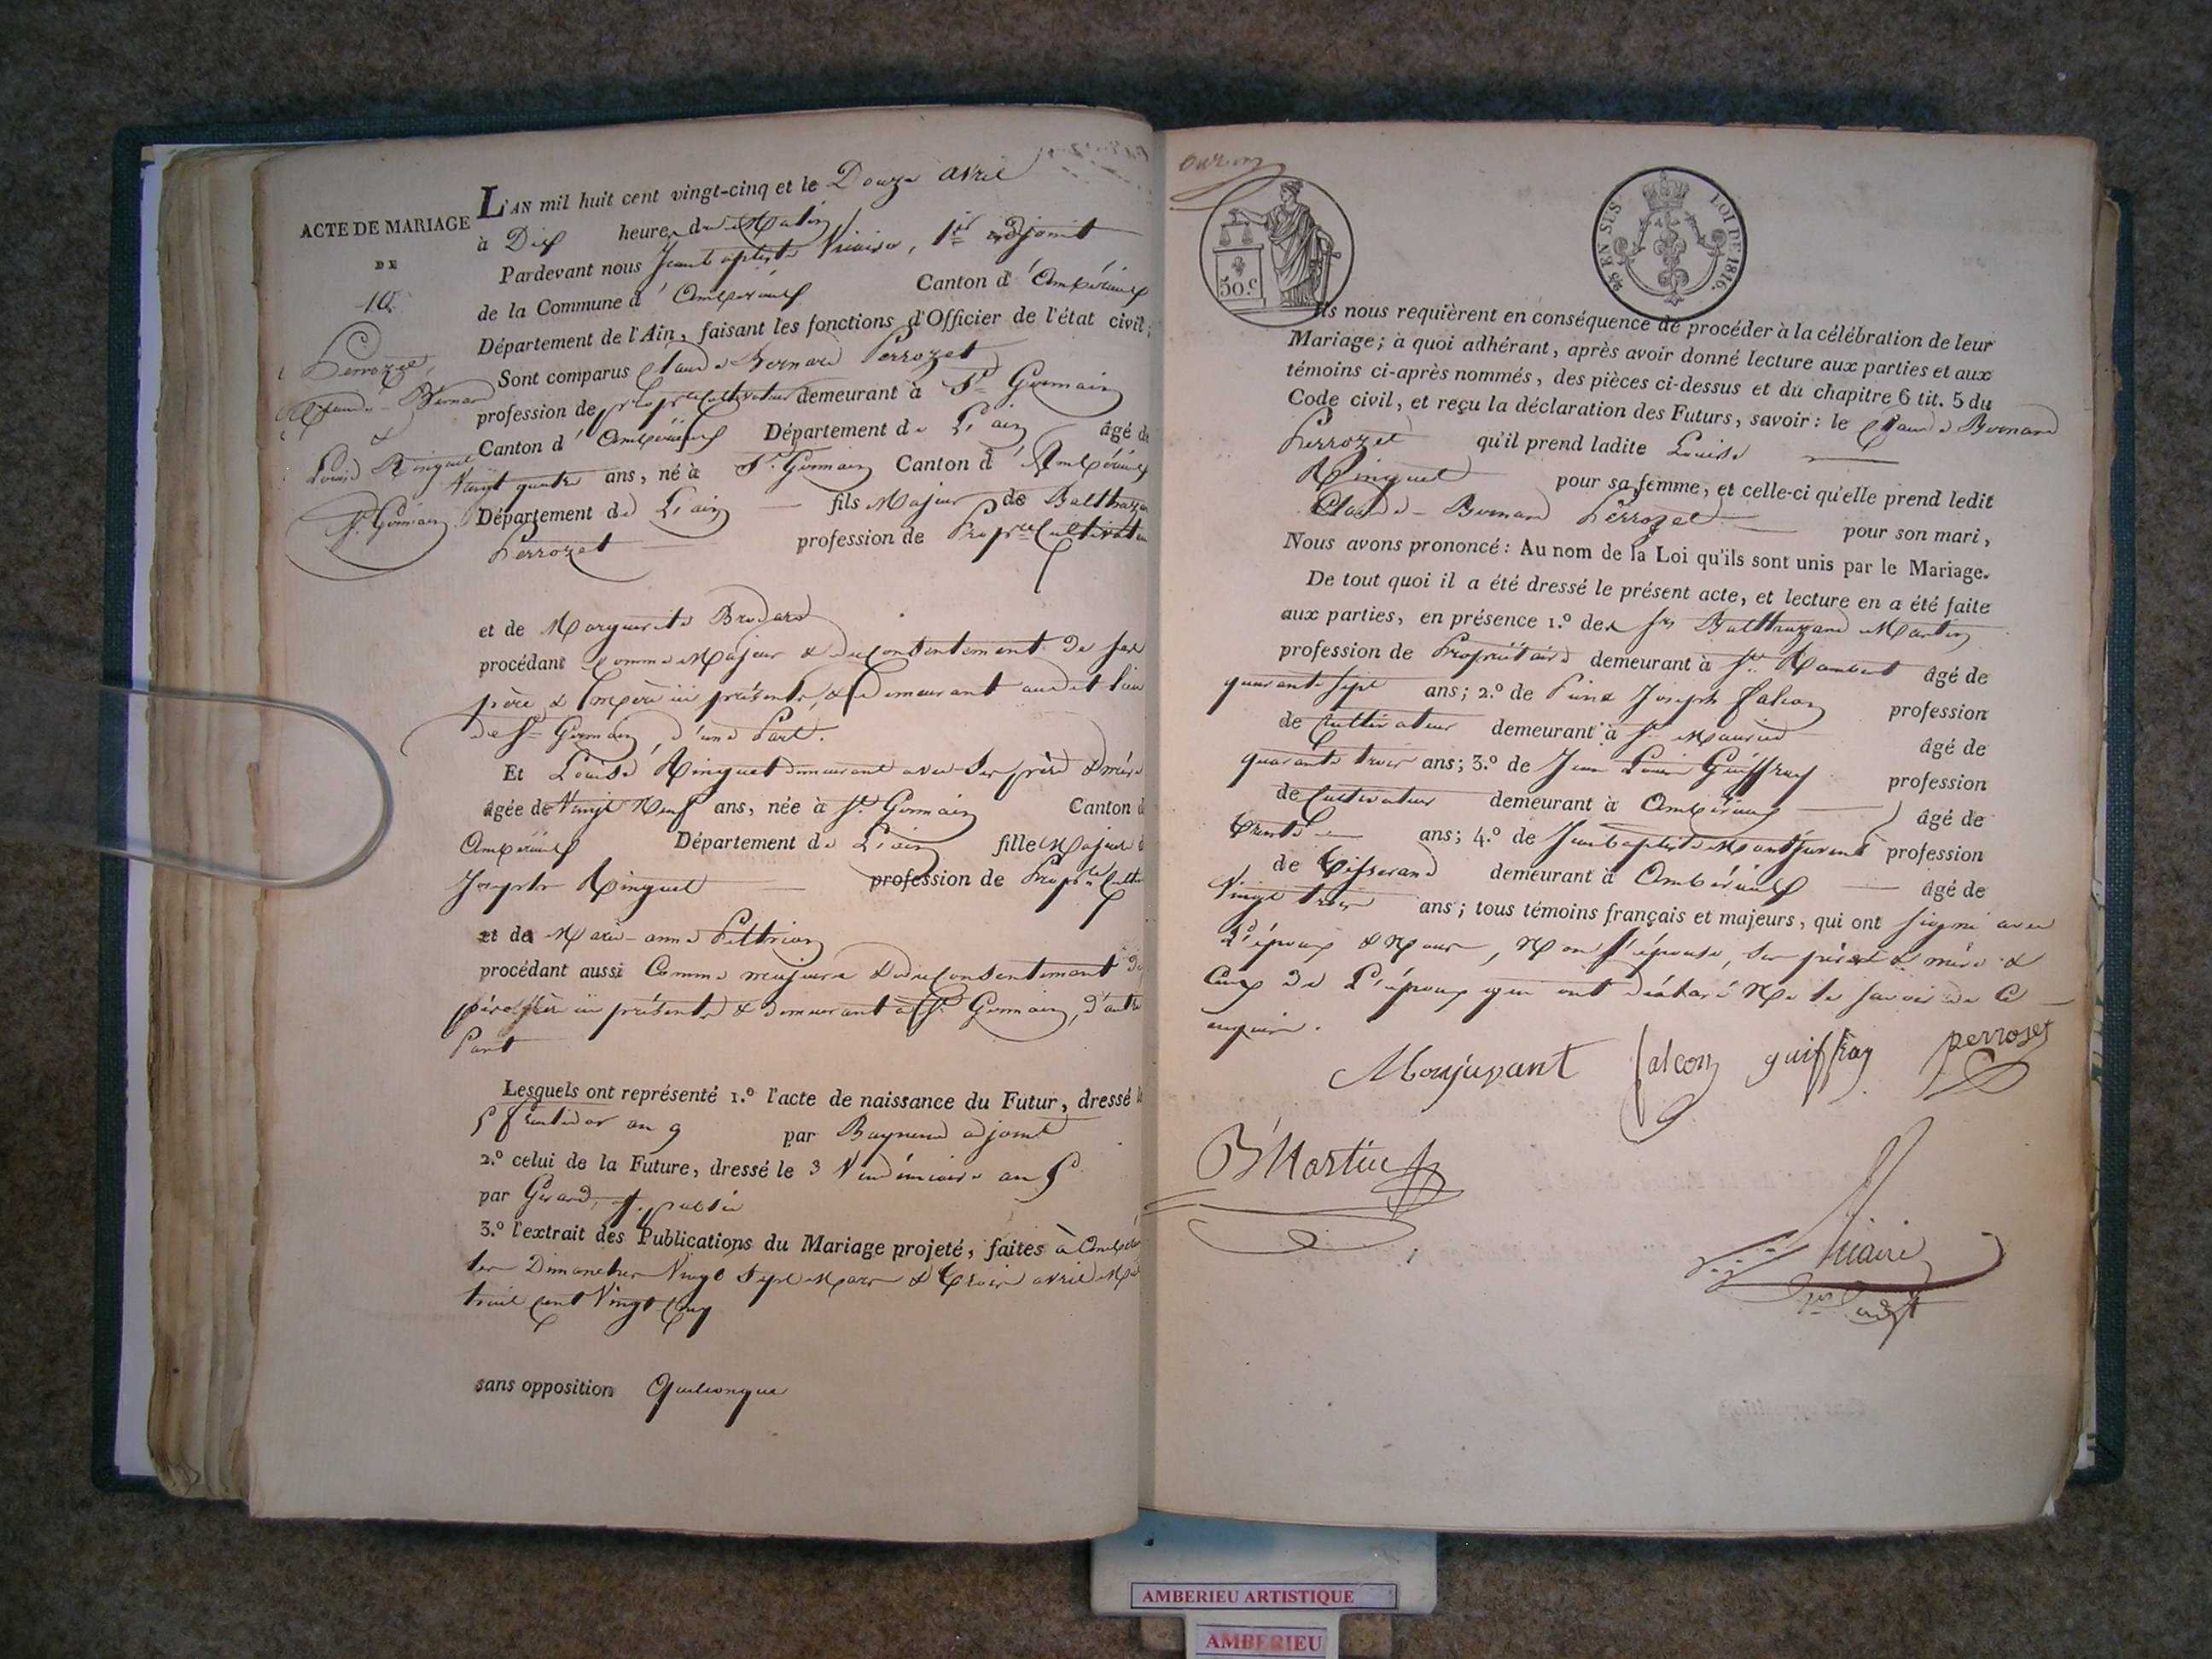 ACTE DE MARIAGE
DE
10.
Perrozet,
Claude-Bernard
&
Louise Ringuet
St. Germain
L'AN mil huit cent vingt-cinq et le Douze avril
à Dix heures du Matin
Pardevant nous Jean baptiste Vicaire, 1er adjoint
de la Commune d'Ambérieux Canton d'Ambérieux
Département de l'Ain, faisant les fonctions d'Officier de l'état civil;
Sont comparus Claude Bernard Perrozet
profession de propre Cultivateur demeurant à St Germain
Canton d'Ambérieux Département de L'ain âgé de
Vingt quatre ans, né à St. Germain Canton d'Ambérieux
Département de L'ain fils Majeur de Balthazar
Perrozet profession de Propre Cultivateur
et de Marguerite Brodard
procédant Comme Majeur & du Consentement de ses
père & mère ici présents, & demeurant audit lieu
de St Germain, d'une Part.
Et Louise Ringuet demeurant avec ses père & mère
âgée de Vingt Neuf ans, née à St. Germain Canton d
Ambérieux Département de L'ain fille Majeure d
Joseph Ringuet profession de Propre Cultiv
et de Marie-anne
procédant aussi Comme majeure & du Consentement de
père & mère ici présents & demeurant à St. Germain, d'autre
Part
Lesquels ont représenté 1.º l'acte de naissance du Futur, dressé le
5 fructidor an 9 par adjoint
2.º celui de la Future, dressé le 3 Vendémiaire an 5
par Girard, off. public
3.º l'extrait des Publications du Mariage projeté, faites à Ambér
les Dimanches Vingt Sept Mars & trois avril Mil
huit Cent Vingt Cinq
sans opposition Quelconque
50.c
EN SUS LOI DE 1816.
Ils nous requièrent en conséquence de procéder à la célébration de leur
Mariage; à quoi adhérant, après avoir donné lecture aux parties et aux
témoins ci-après nommés, des pièces ci-dessus et du chapitre 6 tit. 5 du
Code civil, et reçu la déclaration des Futurs, savoir: le Claude Bernard
Perrozet qu'il prend ladite Louise
Ringuet pour sa femme, et celle-ci qu'elle prend ledit
Claude-Bernard Perrozet pour son mari,
Nous avons prononcé: Au nom de la Loi qu'ils sont unis par le Mariage.
De tout quoi il a été dressé le présent acte, et lecture en a été faite
aux parties, en présence 1.º des Srs Balthazard Martin
profession de Propriétaire demeurant à St. Rambert âgé de
quarante sept ans; 2.º de Pierre Joseph falcon profession
de Cultivateur demeurant à St Maurice âgé de
quarante trois ans; 3.º de Jean Louis Guiffray profession
de Cultivateur demeurant à Ambérieux âgé de
trente ans; 4.º de Jean baptiste Montjuvent profession
de tisserand demeurant à Ambérieux âgé de
Vingt trois ans; tous témoins français et majeurs, qui ont signé avec
L'époux & Nous, Non l'épouse, ses père & mère &
Ceux de L'époux qui ont déclaré Ne le savoir de Ce
enquis.
Monjuvant falcon guiffray perrozet
B Martin
Vicaire
1er adjt
AMBERIEU ARTISTIQUE
AMBERIEU